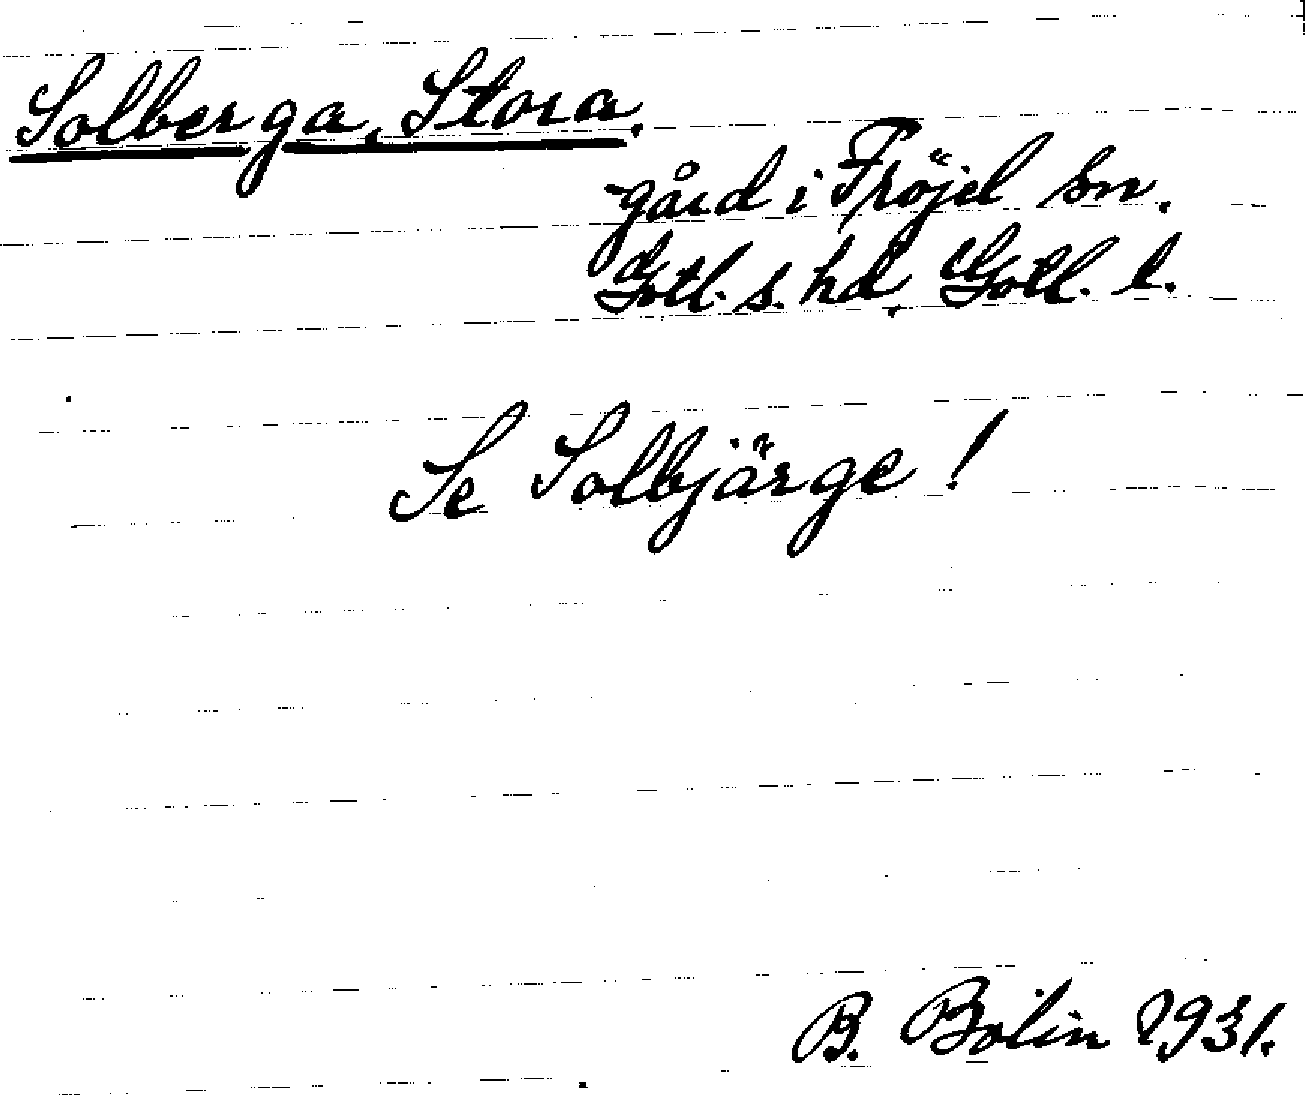 Solberga, Stora.
gård i Fröjel sn.
Gotl. s. hd, Gotl. l.
Se Solbjärge!
B. Bolin 1931.